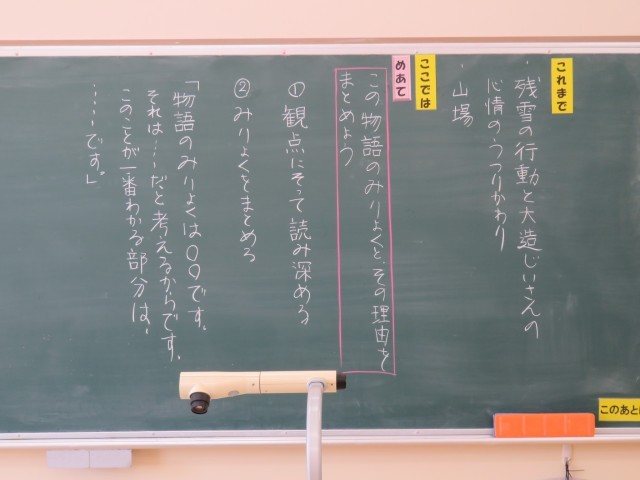 これまで
・残雪の行動と大造じいさんの
心情のうつりかわり
・山場
ここでは
めあて
この物語のみりょくと、その理由を
まとめよう
① 観点にそって読み深める
② みりょくをまとめる
「物語のみりょくは〇〇です。
それは…だと考えるからです。
このことが一番わかる部分は、
……です。」
このあと